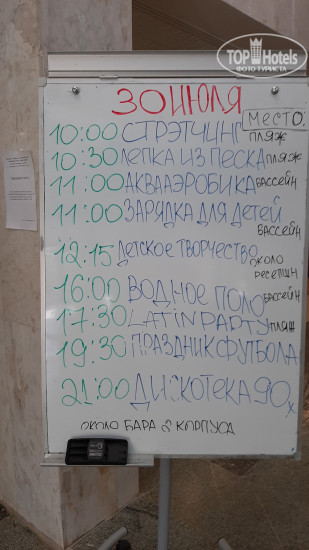 TOP Hotels
ФОТО ТУРИСТА
30 ИЮЛЯ
МЕСТО:
10:00 СТРЭТЧИНГ ПЛЯЖ
10:30 ЛЕПКА ИЗ ПЕСКА ПЛЯЖ
11:00 АКВААЭРОБИКА БАССЕЙН
11:00 ЗАРЯДКА ДЛЯ ДЕТЕЙ
БАССЕЙН
12:15 ДЕТСКОЕ ТВОРЧЕСТВО ОКОЛО
РЕСЕПШН
16:00 ВОДНОЕ ПОЛО БАССЕЙН
17:30 LATIN PARTY ПЛЯЖ
19:30 ПРАЗДНИК ФУТБОЛА
21:00 ДИСКОТЕКА 90х
ОКОЛО БАРА 8 КОРПУСА